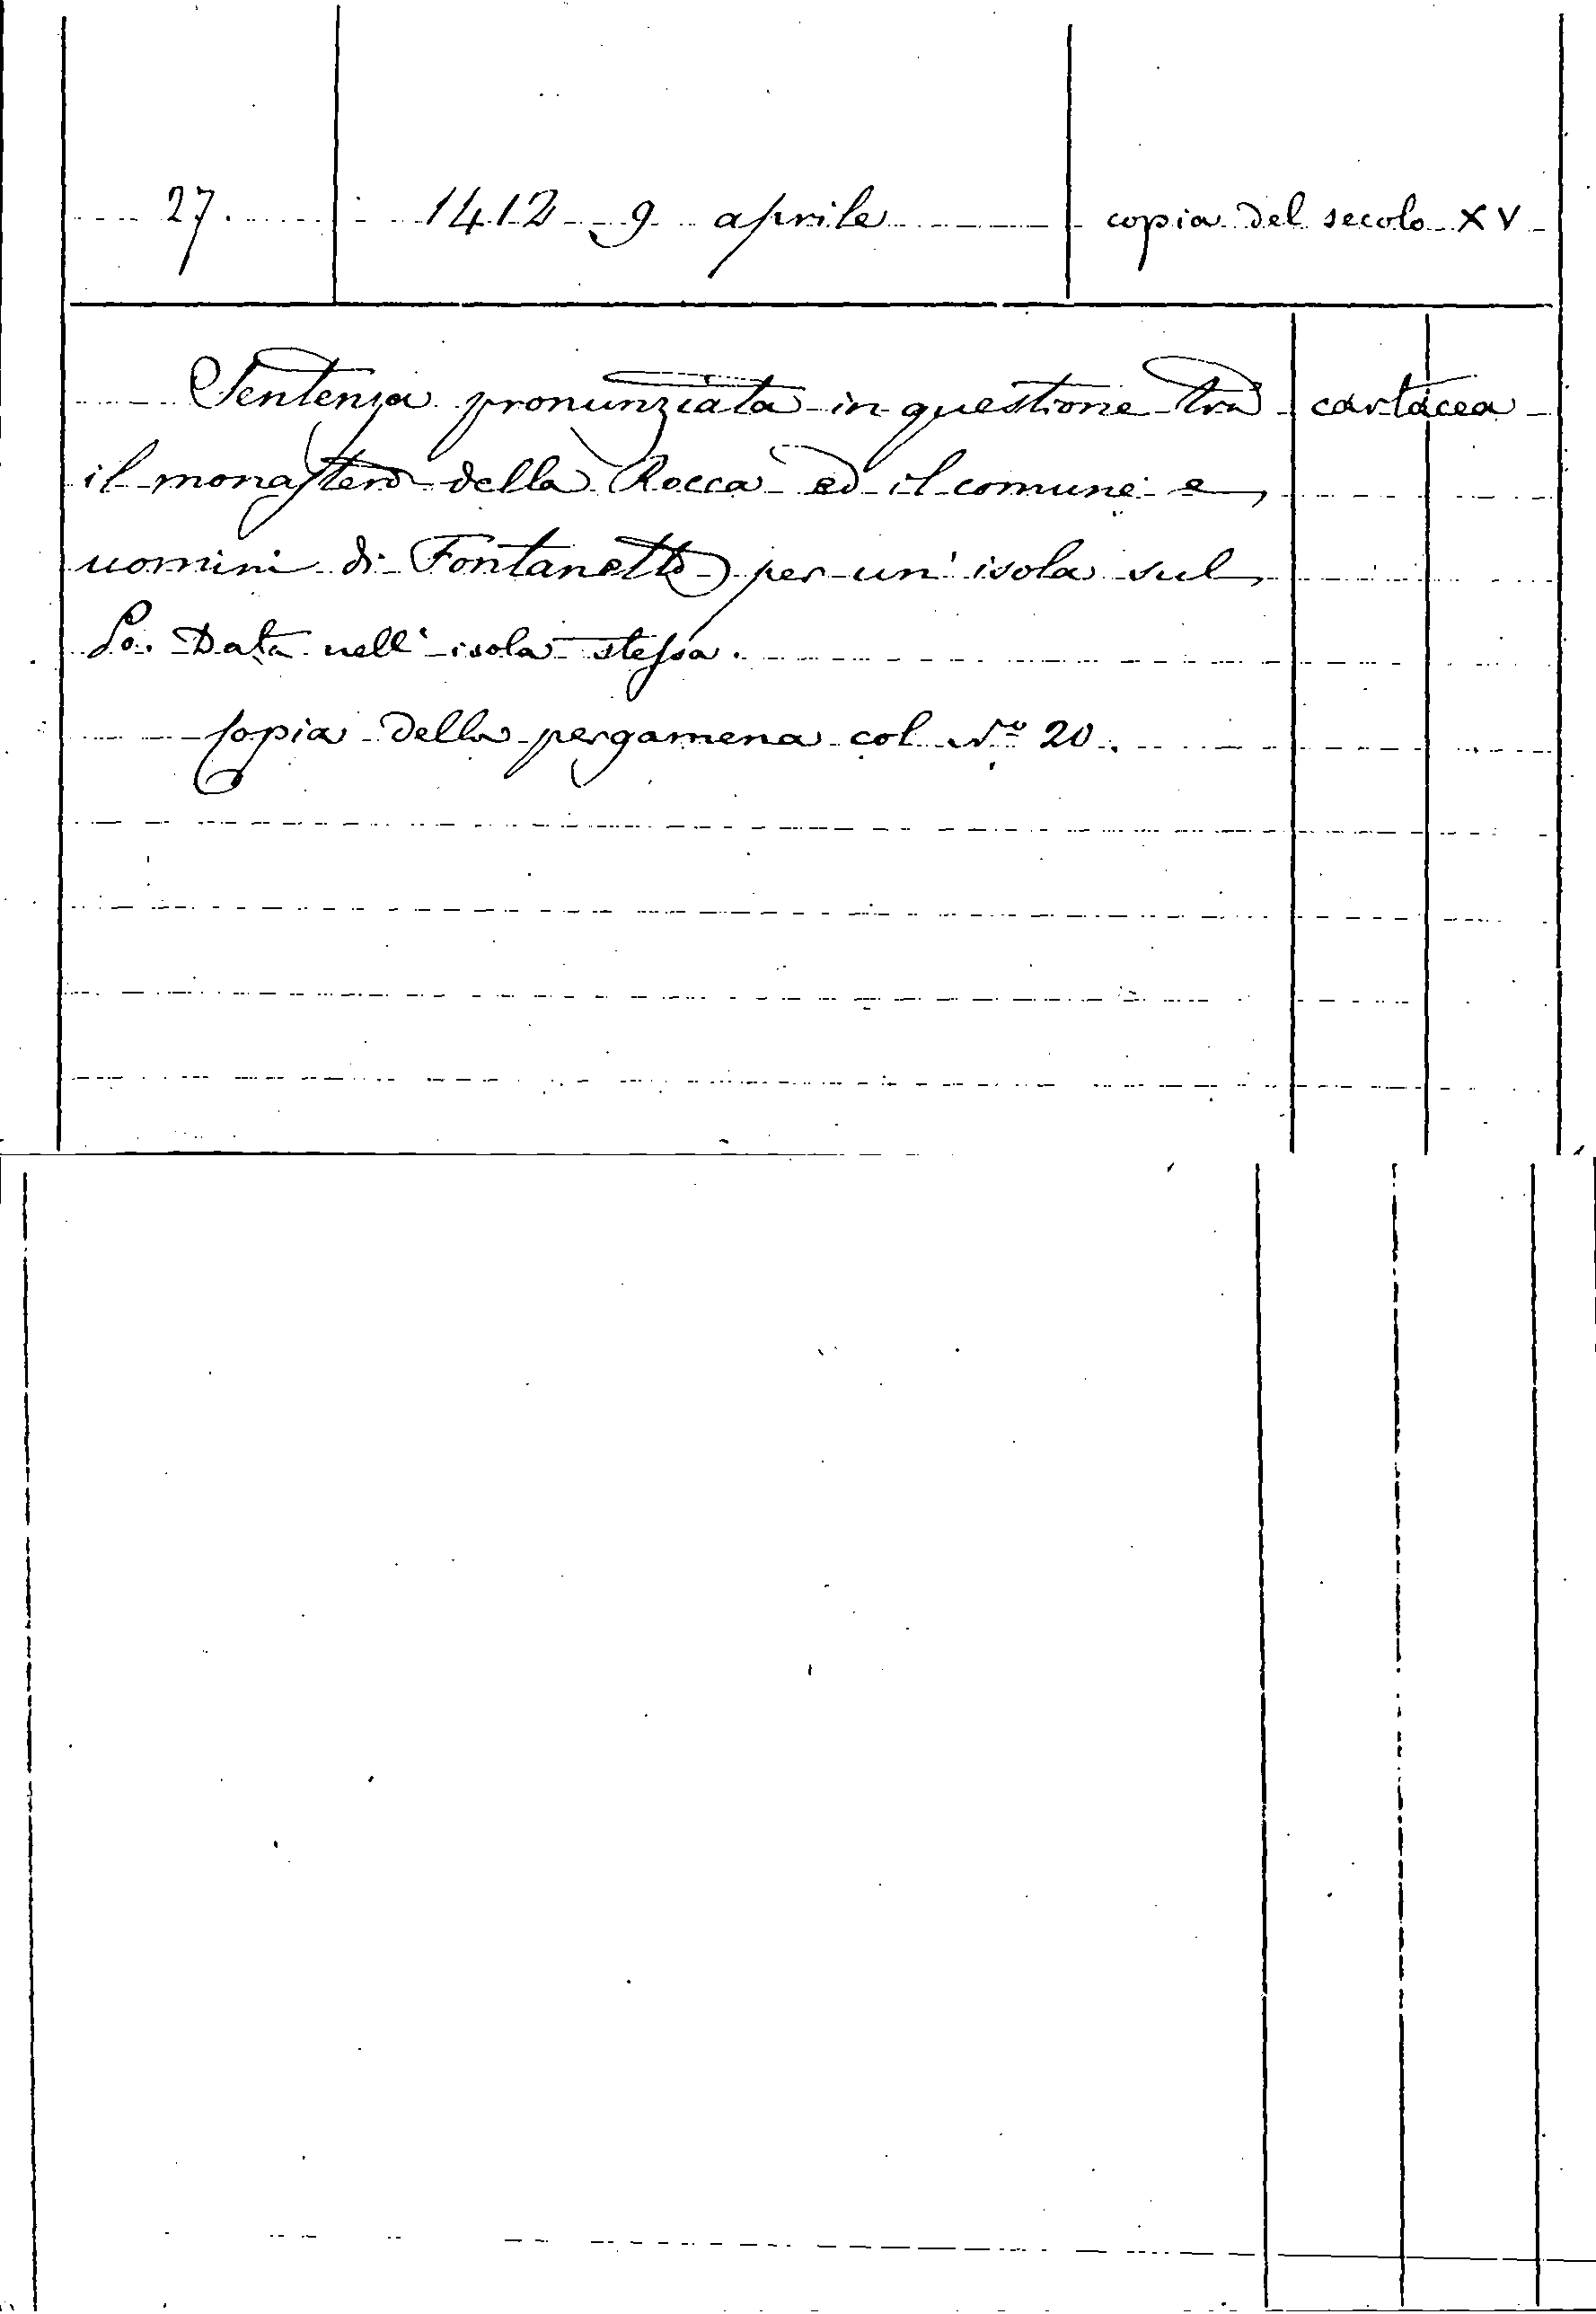 27. 1412 9 aprile copia del secolo XV
Sentenza pronunziata in questione tra cartacea
il monastero della Rocca ed il comune e
uomini di Fontanetto per un' isola sul
Po. Data nell' isola stessa.
Copia della pergamena col No 20.